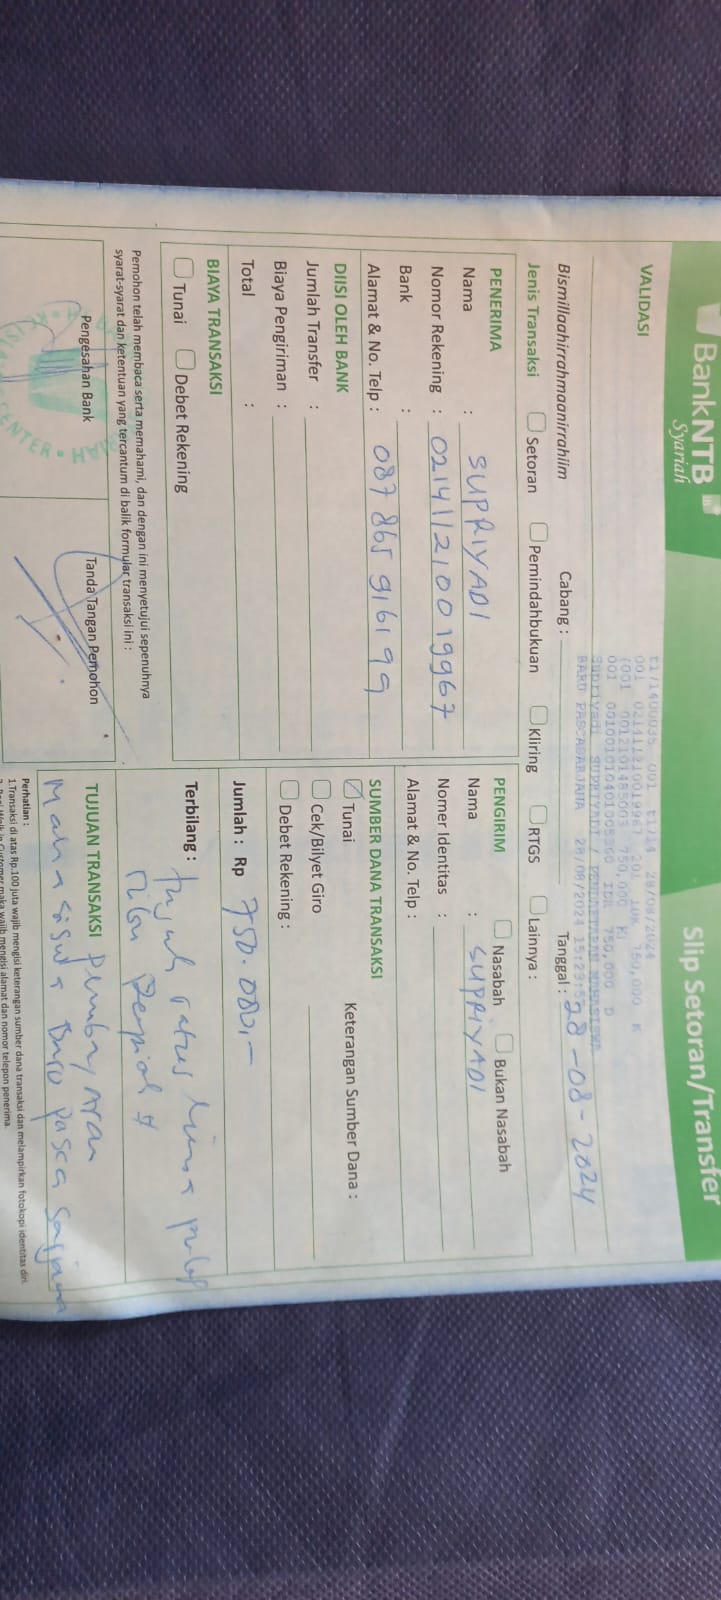 BankNTB
Syariah
Slip Setoran/Transfer
VALIDASI
t1714U0035 001 t1714 28/08/2024
001 021411210019967 201 IDR 750,000 K
001 0012101485003 750,000 K
001 001001010401005360 IDR 750,000 D
Supriyadi SUPRIYADI / PENDAFTARAN MAHASISWA
BARU PASCASARJANA 28/08/2024 15:29:5
Bismilloahirrahmaanirrahiim
Cabang :
Tanggal : 28-08-2024
Jenis Transaksi Setoran Pemindahbukuan Kliring RTGS Lainnya :
PENERIMA
Nama : SUPRIYADI
Nomor Rekening : 02141121001 9967
Bank :
Alamat & No. Telp : 087 865 916199
DIISI OLEH BANK
Jumlah Transfer :
Biaya Pengiriman :
Total :
BIAYA TRANSAKSI
Tunai Debet Rekening
Pemohon telah membaca serta memahami, dan dengan ini menyetujui sepenuhnya
syarat-syarat dan ketentuan yang tercantum di balik formular transaksi ini :
Pengesahan Bank
Tanda Tangan Pemohon
PENGIRIM Nasabah Bukan Nasabah
Nama : SUPRIYADI
Nomer Identitas :
Alamat & No. Telp :
SUMBER DANA TRANSAKSI
Tunai Keterangan Sumber Dana :
Cek/Bilyet Giro
Debet Rekening :
Jumlah : Rp 750.000,-
Terbilang : tujuh ratus lima puluh
ribu rupiah #
TUJUAN TRANSAKSI Pembayaran
Mahasiswa Baru pasca sarjana
Perhatian :
1.Transaksi di atas Rp.100 juta wajib mengisi keterangan sumber dana transaksi dan melampirkan fotokopi identitas diri.
2.Bagi Walk in Customer maka wajib mengisi alamat dan nomor telepon penerima.